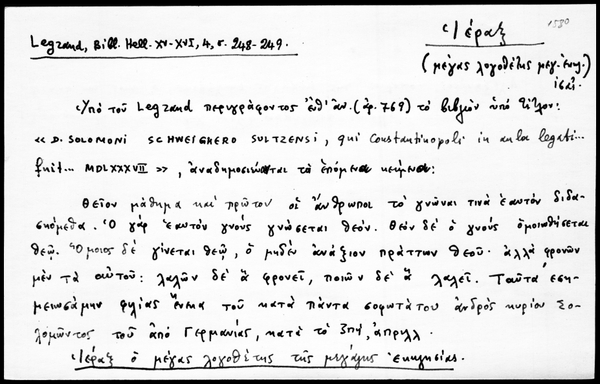 1580
Ἱέραξ
Legrand, Bibl. Hell. XV-XVI, 4, σ. 248-249.
(μέγας λογοθέτης μεγ. ἐκκλ.)
Ὑπὸ τοῦ Legrand περιγράφοντος (ἀρ. 769) τὸ βιβλίον ὑπὸ τίτλον:
« D. SOLOMONI SCHWEIGHERO SULTZENSI, qui Constantinopoli in aula legati...
fuit... MDLXXXVII », ἀναδημοσιεύεται τὸ ἑπόμενον κείμενον:
Θεῖον μάθημα καὶ πρῶτον οἱ ἄνθρωποι τὸ γνῶναι τινὰ ἑαυτὸν διδα-
σκόμεθα. Ὁ γὰρ ἑαυτὸν γνοὺς γνώσεται θεόν. Θεὸν δὲ ὁ γνοὺς ὁμοιωθήσεται
θεῷ. Ὅμοιος δὲ γίνεται θεῷ, ὁ μηδὲν ἀνάξιον πράττων θεοῦ· ἀλλὰ φρονῶν
μὲν τὰ αὐτοῦ: λαλῶν δὲ ἃ φρονεῖ, ποιῶν δὲ ἃ λαλεῖ. Ταῦτα ἐση-
μειωσάμην φιλίας ἕνεκα τοῦ κατὰ πάντα σοφωτάτου ἀνδρὸς κυρίου Σο-
λομῶντος τοῦ ἀπὸ Γερμανίας, κατὰ τὸ ζπή, ἀπριλλ.
Ἱέραξ ὁ μέγας λογοθέτης τῆς μεγάλης ἐκκλησίας.